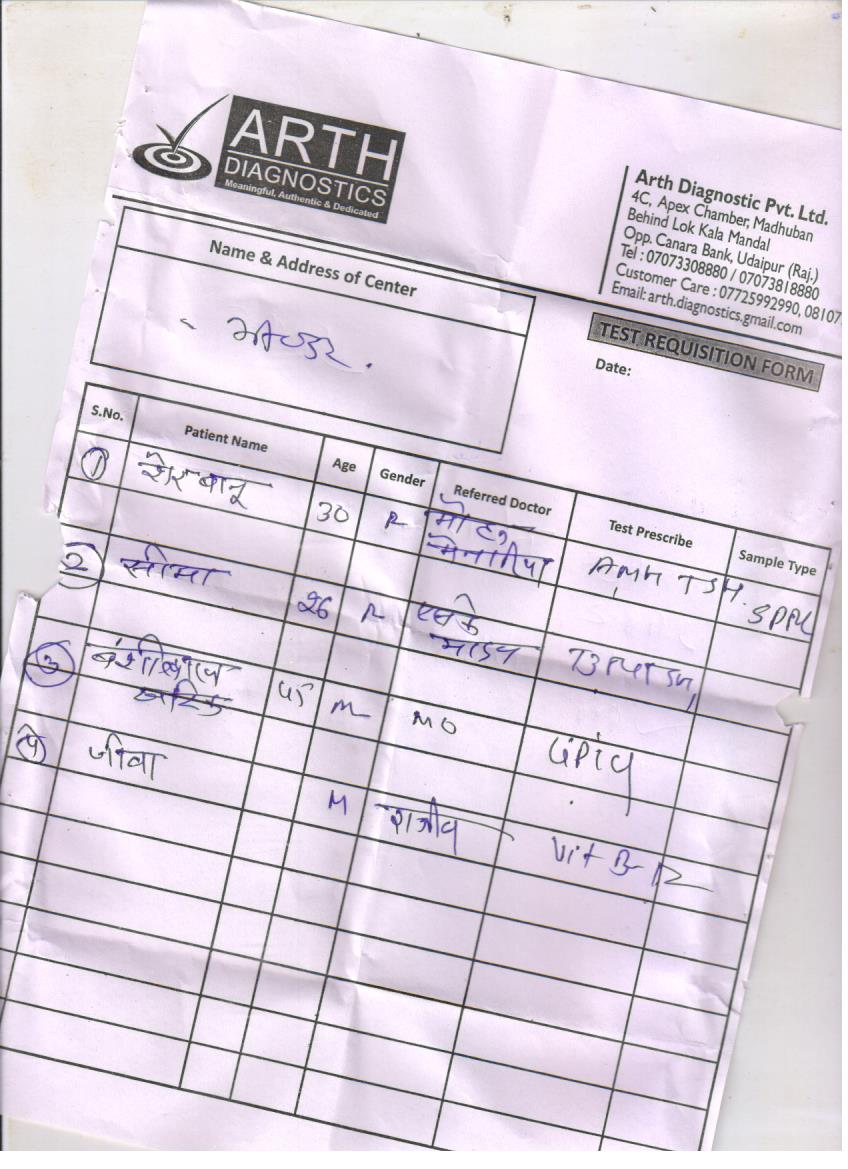 ARTH
DIAGNOSTICS
Meaningful, Authentic & Dedicated
Arth Diagnostic Pvt. Ltd.
4C, Apex Chamber, Madhuban
Behind Lok Kala Mandal
Opp. Canara Bank, Udaipur (Raj.)
Tel : 07073308880 / 07073818880
Customer Care : 07725992990, 08107
Email: arth.diagnostics.gmail.com
Name & Address of Center
TEST REQUISITION FORM
Date:
S.No. Patient Name Age Gender Referred Doctor Test Prescribe Sample Type
1 शेर बानू 30 मोहन AMH TSH
मेनारिया
2 सीमा 26
3 45 M MO
जीवा M राजीव Vit B-12